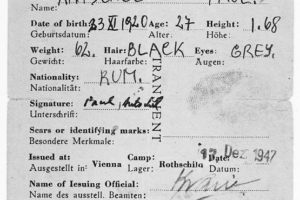 Name:
Date of birth: 23 XI 1920 Age: 27 Height: 1.68
Geburtsdatum: Alter: Höhe:
Weight: 62. Hair: BLACK Eyes: GREY.
Gewicht: Haarfarbe: Augen:
Nationality: RUM.
Nationalität:
Signature: Paul
Unterschrift:
Scars or identifying marks:
Besondere Merkmale:
Issued at: Camp: Date:
Ausgestellt in: Vienna Lager: Rothschild Datum: Dez 1947
Name of Issuing Official:
Name des ausstell. Beamten: